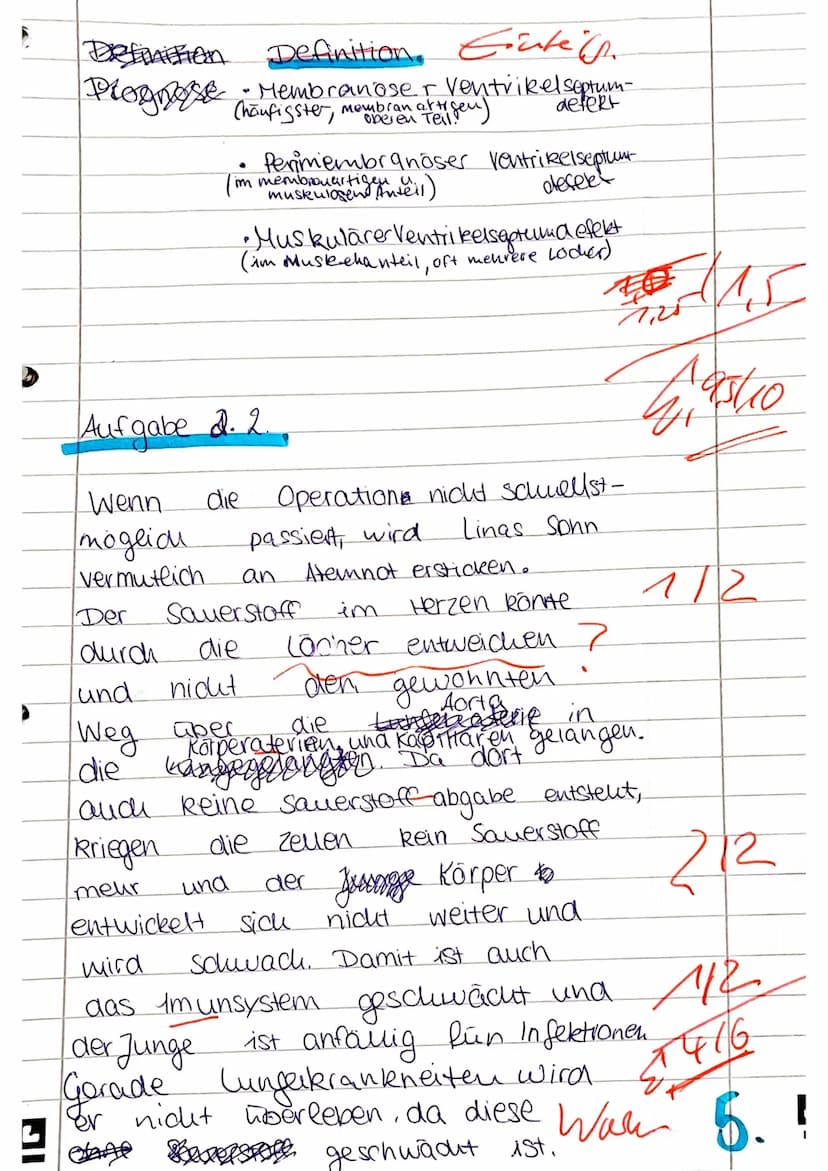 Definition Definition. Einteil.
Prognose • Membranöser Ventrikelseptum-
(häufigster, membranartigen defekt
oberen Teil.)
• Perimembranöser Ventrikelseptum-
(im membranartigen u. defekt
muskulösen Anteil)
• Muskulärer Ventrikelseptumdefekt
(im Muskelanteil, oft mehrere Löcher)
1,25 / 1,5
9,5/10
Aufgabe 2.2.
Wenn die Operation nicht schnellst-
möglich passiert, wird Linas Sohn
vermutlich an Atemnot ersticken.
Der Sauerstoff im Herzen könnte 1/2
durch die Löcher entweichen ?
und nicht den gewohnten
Weg über die Aorta in
die Körperaterien, und Kapillaren gelangen.
Da dort
auch keine Sauerstoff-abgabe entsteht,
kriegen die Zellen kein Sauerstoff
mehr und der Körper 2/2
entwickelt sich nicht weiter und
wird schwach. Damit ist auch
das Imunsystem geschwächt und 1/2
der Junge ist anfällig für Infektionen
Gerade Lungenkrankheiten wird 4/6
er nicht überleben, da diese
geschwächt ist. 5.